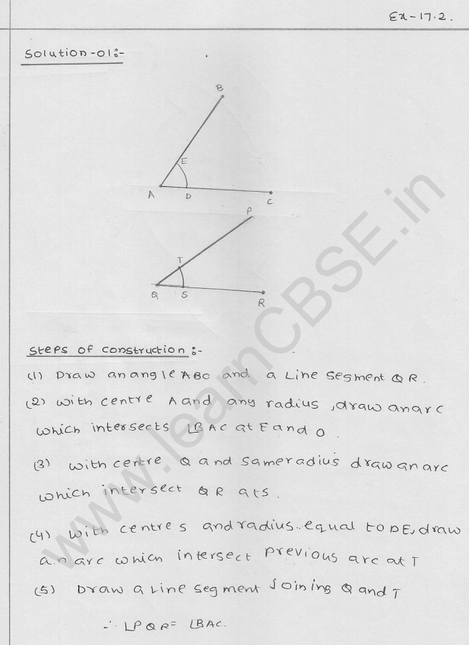 Ex-17.2.
Solution-01:-
B
E
A D C
P
T
Q S R
Steps of construction:-
(1) Draw an angle ABC and a Line segment QR.
(2) with centre A and any radius, draw an arc
which intersects ∠BAC at E and D.
(3) with centre Q and same radius draw an arc
which intersect QR at S.
(4) with centre S and radius equal to DE, draw
an arc which intersect previous arc at T
(5) Draw a Line segment Joining Q and T
∴ ∠PQR = ∠BAC.
www.learnCBSE.in